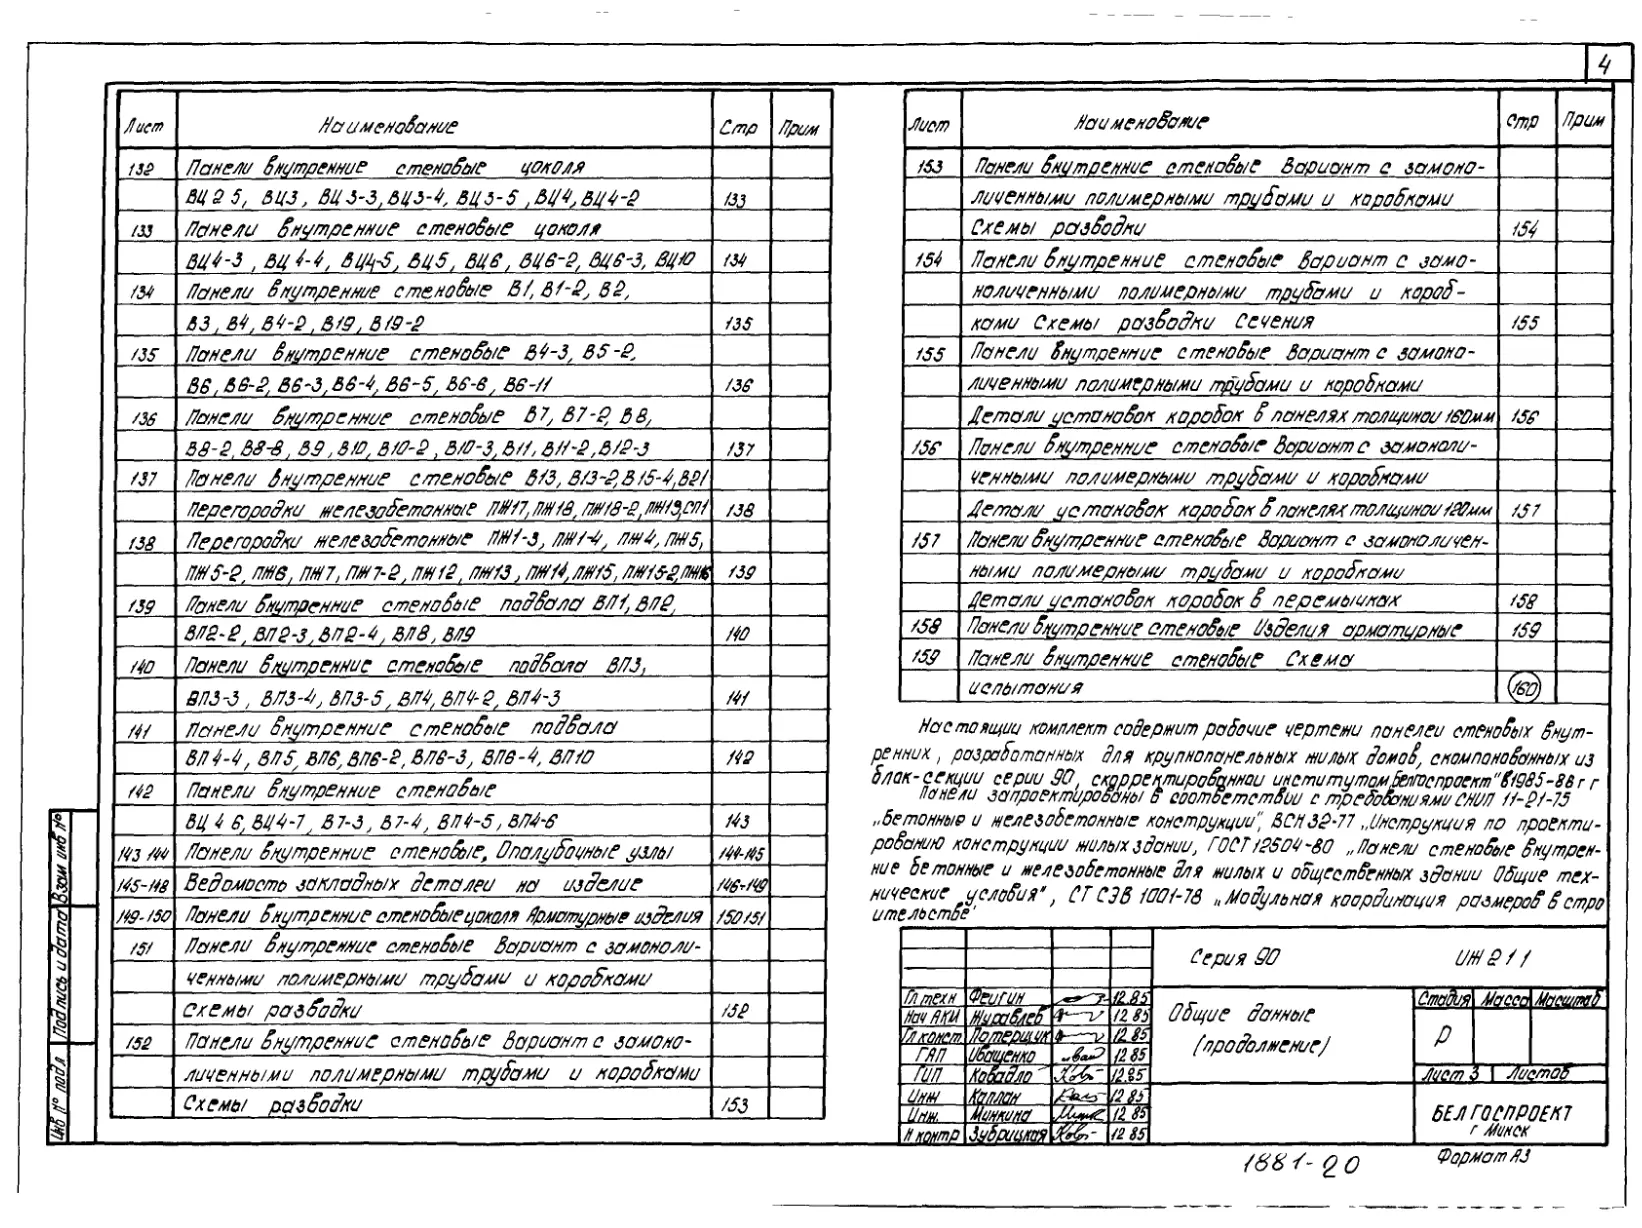 4
Лист Наименование Стр Прим
132 Панели внутренние стеновые цоколя
ВЦ2 5, ВЦ3, ВЦ3-3, ВЦ3-4, ВЦ3-5, ВЦ4, ВЦ4-2 133
133 Панели внутренние стеновые цоколя
ВЦ4-3, ВЦ4-4, ВЦ4-5, ВЦ5, ВЦ6, ВЦ6-2, ВЦ6-3, ВЦ10 134
134 Панели внутренние стеновые В1, В1-2, В2,
В3, В4, В4-2, В19, В19-2 135
135 Панели внутренние стеновые В4-3, В5-2,
В6, В6-2, В6-3, В6-4, В6-5, В6-8, В6-11 136
136 Панели внутренние стеновые В7, В7-2, В8,
В8-2, В8-8, В9, В10, В10-2, В10-3, В11, В11-2, В12-3 137
137 Панели внутренние стеновые В13, В13-2, В15-4, В21
Перегородки железобетонные ПЖ17, ПЖ18, ПЖ18-2, ПЖ19, СП1 138
138 Перегородки железобетонные ПЖ1-3, ПЖ1-4, ПЖ4, ПЖ5,
ПЖ5-2, ПЖ6, ПЖ7, ПЖ7-2, ПЖ12, ПЖ13, ПЖ14, ПЖ15, ПЖ15-2, ПЖ16 139
139 Панели внутренние стеновые подвала ВП1, ВП2,
ВП2-2, ВП2-3, ВП2-4, ВП8, ВП9 140
140 Панели внутренние стеновые подвала ВП3,
ВП3-3, ВП3-4, ВП3-5, ВП4, ВП4-2, ВП4-3 141
141 Панели внутренние стеновые подвала
ВП4-4, ВП5, ВП6, ВП6-2, ВП6-3, ВП6-4, ВП10 142
142 Панели внутренние стеновые
ВЦ 4 6, ВЦ4-7, В7-3, В7-4, ВП4-5, ВП4-6 143
143 144 Панели внутренние стеновые, Опалубочные узлы 144-145
145-148 Ведомость закладных деталей на изделие 146-149
149-150 Панели внутренние стеновые цоколя Арматурные изделия 150 151
151 Панели внутренние стеновые Вариант с замоноли-
ченными полимерными трубами и коробками
Схемы разводки 152
152 Панели внутренние стеновые Вариант с замоно-
личенными полимерными трубами и коробками
Схемы разводки 153
Лист Наименование Стр Прим
153 Панели внутренние стеновые Вариант с замоно-
личенными полимерными трубами и коробками
Схемы разводки 154
154 Панели внутренние стеновые Вариант с замо-
ноличенными полимерными трубами и короб-
ками Схемы разводки Сечения 155
155 Панели внутренние стеновые Вариант с замоно-
личенными полимерными трубами и коробками
Детали установок коробок в панелях толщиной 160мм 156
156 Панели внутренние стеновые Вариант с замоноли-
ченными полимерными трубами и коробками
Детали установок коробок в панелях толщиной 120мм 157
157 Панели внутренние стеновые Вариант с замоноличен-
ными полимерными трубами и коробками
Детали установок коробок в перемычках 158
158 Панели внутренние стеновые Изделия арматурные 159
159 Панели внутренние стеновые Схема
испытания 160
Настоящий комплект содержит рабочие чертежи панелей стеновых внут-
ренних, разработанных для крупнопанельных жилых домов, скомпонованных из
блок-секции серии 90, скорректированной институтом „Белгоспроект" в 1985-86 г г
Панели запроектированы в соответствии с требованиями СНиП II-21-75
„Бетонные и железобетонные конструкции", ВСН 32-77 „Инструкция по проекти-
рованию конструкции жилых здании, ГОСТ 12504-80 „Панели стеновые внутрен-
ние бетонные и железобетонные для жилых и общественных здании Общие тех-
нические условия", СТ СЭВ 1001-78 „Модульная координация размеров в стро
ительстве"
Серия 90 ИЖ 211
Гл техн Фейгин 12.85
Нач АКИ Журавлев 12 85
Гл констр Потерщук 12 85
ГАП Иващенко 12 85
ГИП Ковадло 12.85
Инж Каплан 12 85
Инж. Минкина 12 85
Н контр Зубрицкая 12 85
Общие данные
(продолжение)
Стадия Масса Масштаб
Р
Лист 3 Листов
БЕЛГОСПРОЕКТ
г Минск
Инв № подл Подпись и дата Взам инв №
1881-20 Формат А3